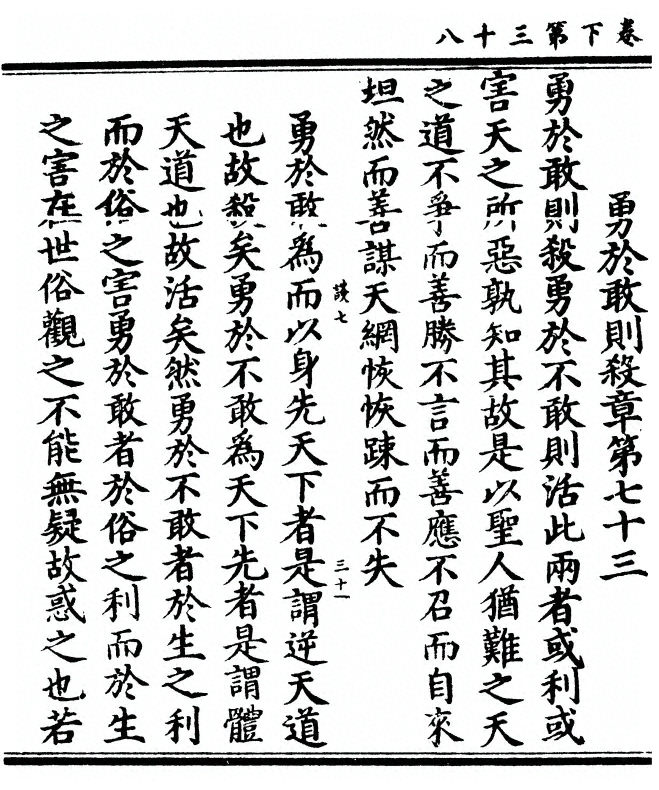 卷下第三十八
勇於敢則殺章第七十三
勇於敢則殺勇於不敢則活此兩者或利或
害天之所惡孰知其故是以聖人猶難之天
之道不爭而善勝不言而善應不召而自來
坦然而善謀天網恢恢踈而不失
勇於敢為而以身先天下者是謂逆天道
談七
三十一
也故殺矣勇於不敢為天下先者是謂體
天道也故活矣然勇於不敢者於生之利
而於俗之害勇於敢者於俗之利而於生
之害在世俗觀之不能無疑故惑之也若